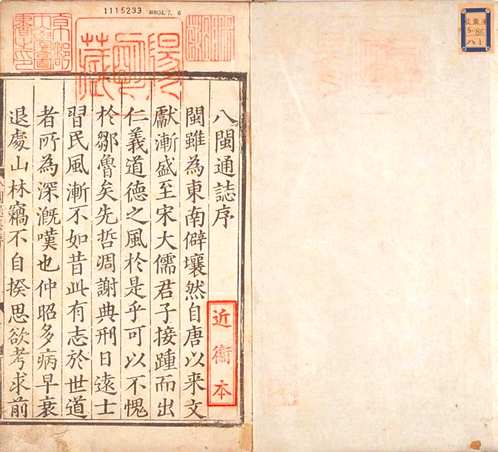 八閩通誌序
閩雖為東南僻壤然自唐以来文
獻漸盛至宋大儒君子接踵而出
仁義道德之風於是乎可以不愧
於鄒魯矣先哲凋謝典刑日遠士
習民風漸不如昔此有志於世道
者所為深漑嘆也仲昭多病早衰
退處山林竊不自揆思欲考求前
近衞本
1115233
昭和4.7.6